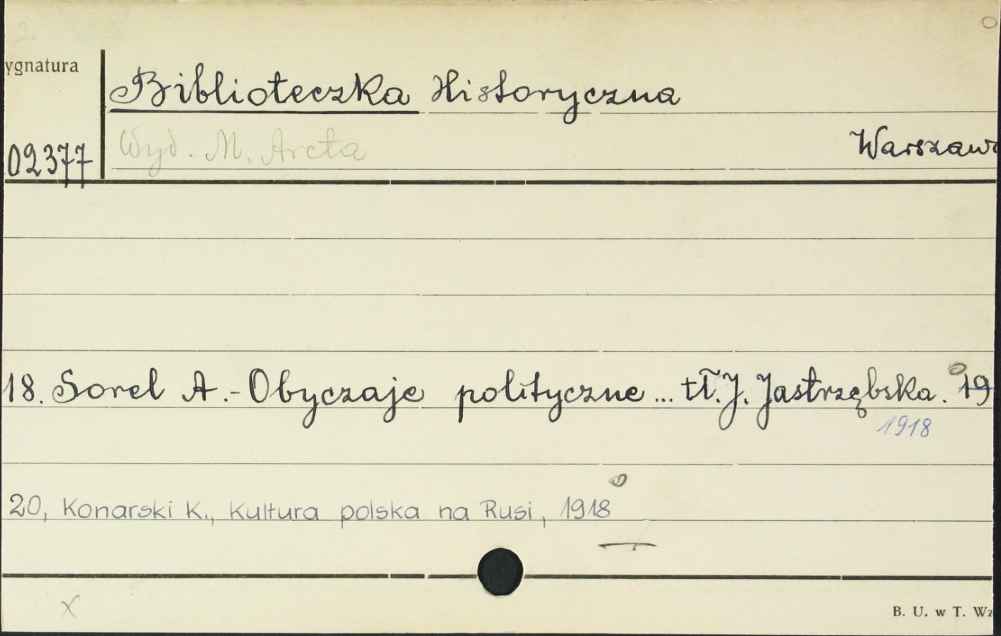 ygnatura
Biblioteczka Historyczna
02377 Wyd. M. Arcta Warszaw
18. Sorel A. - Obyczaje polityczne ... tł. J. Jastrzębska. 19
1918
20, Konarski K., Kultura polska na Rusi, 1918
x
B. U. w T. Wz